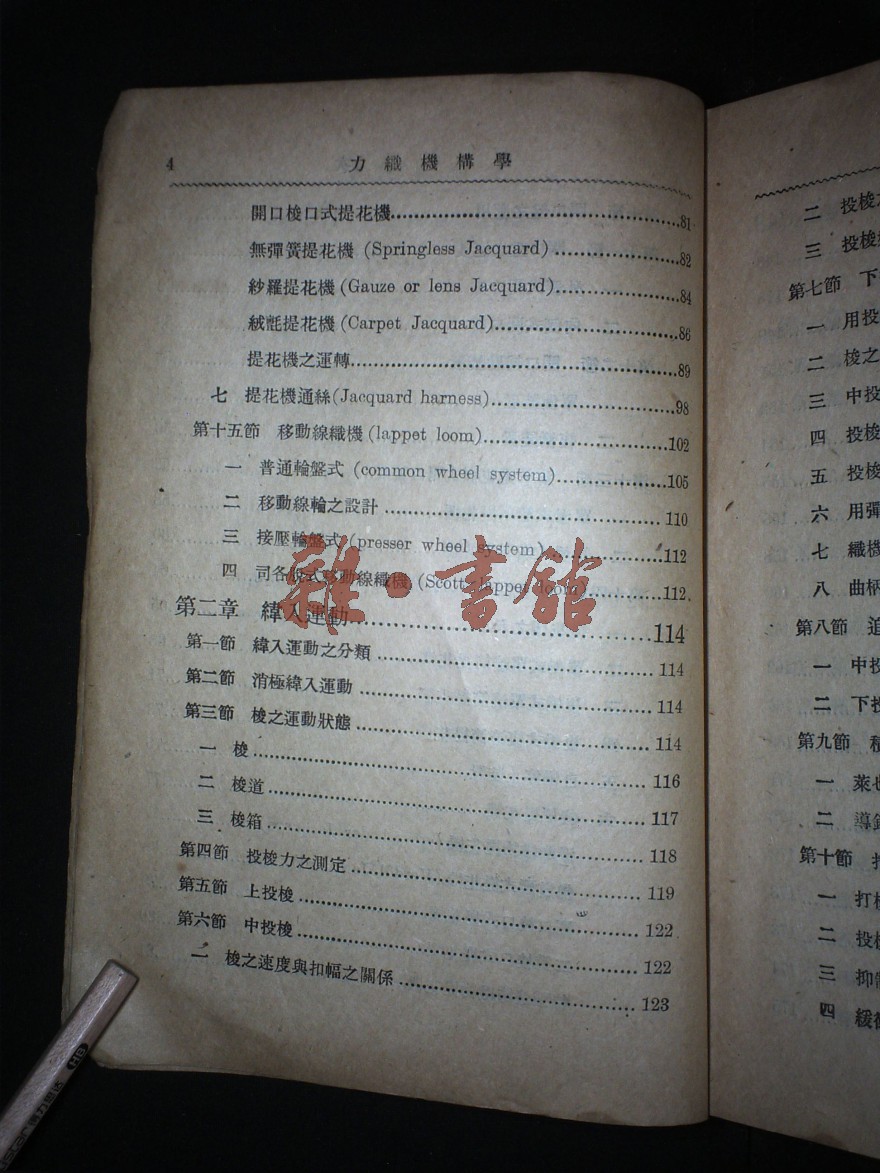 4
力織機構學
開口梭口式提花機 81
無彈簧提花機 (Springless Jacquard) 82
紗羅提花機 (Gauze or lens Jacquard) 84
絨氈提花機 (Carpet Jacquard) 86
提花機之運轉 89
七 提花機通絲 (Jacquard harness) 98
第十五節 移動線織機 (lappet loom) 102
一 普通輪盤式 (common wheel system) 105
二 移動線輪之設計 110
三 接壓輪盤式 (presser wheel system) 112
四 司各脫式移動線織機 (Scott lappet loom) 112
第二章 緯入運動 114
第一節 緯入運動之分類 114
第二節 消極緯入運動 114
第三節 梭之運動狀態 114
一 梭 116
二 梭道 117
三 梭箱 118
第四節 投梭力之測定 119
第五節 上投梭 122
第六節 中投梭 122
一 梭之速度與扣幅之關係 123
雜·書館
HB
二 投梭
三 投梭
第七節 下
一 用投
二 梭之
三 中投
四 投梭
五 投梭
六 用彈
七 織機
八 曲柄
第八節 追
一 中投
二 下投
第九節 積
一 萊
二 導
第十節
一 打
二 投梭
三 抑
四 緩